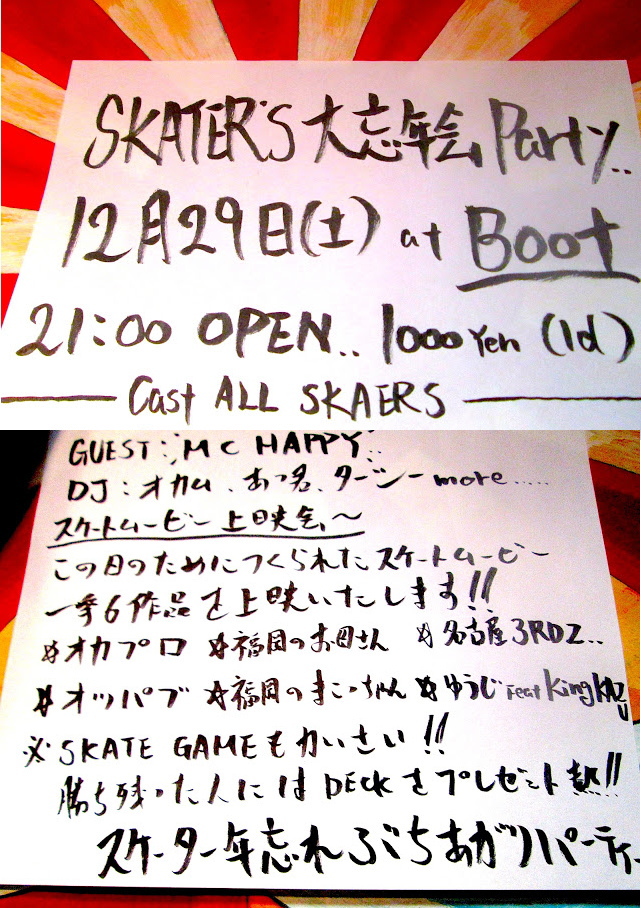 SKATER'S 大忘年会 Party..
12月29日(土) at Boot
21:00 OPEN.. 1000 Yen (1d)
Cast ALL SKAERS
GUEST: MC HAPPY..
DJ:オカム、あつ名、ターシー more.....
スケートムービー上映会〜
この日のためにつくられたスケートムービー
一挙6作品を上映いたします!!
※オカプロ ※福岡のお母さん ※名古屋3RDZ..
※オッパブ ※福岡のまこっちゃん ※ゆうじ Feat King KAZU
※SKATE GAMEもかいさい!!
勝ち残った人にはDECKをプレゼント熱!!
スケーター年忘れぶちあがりパーティー